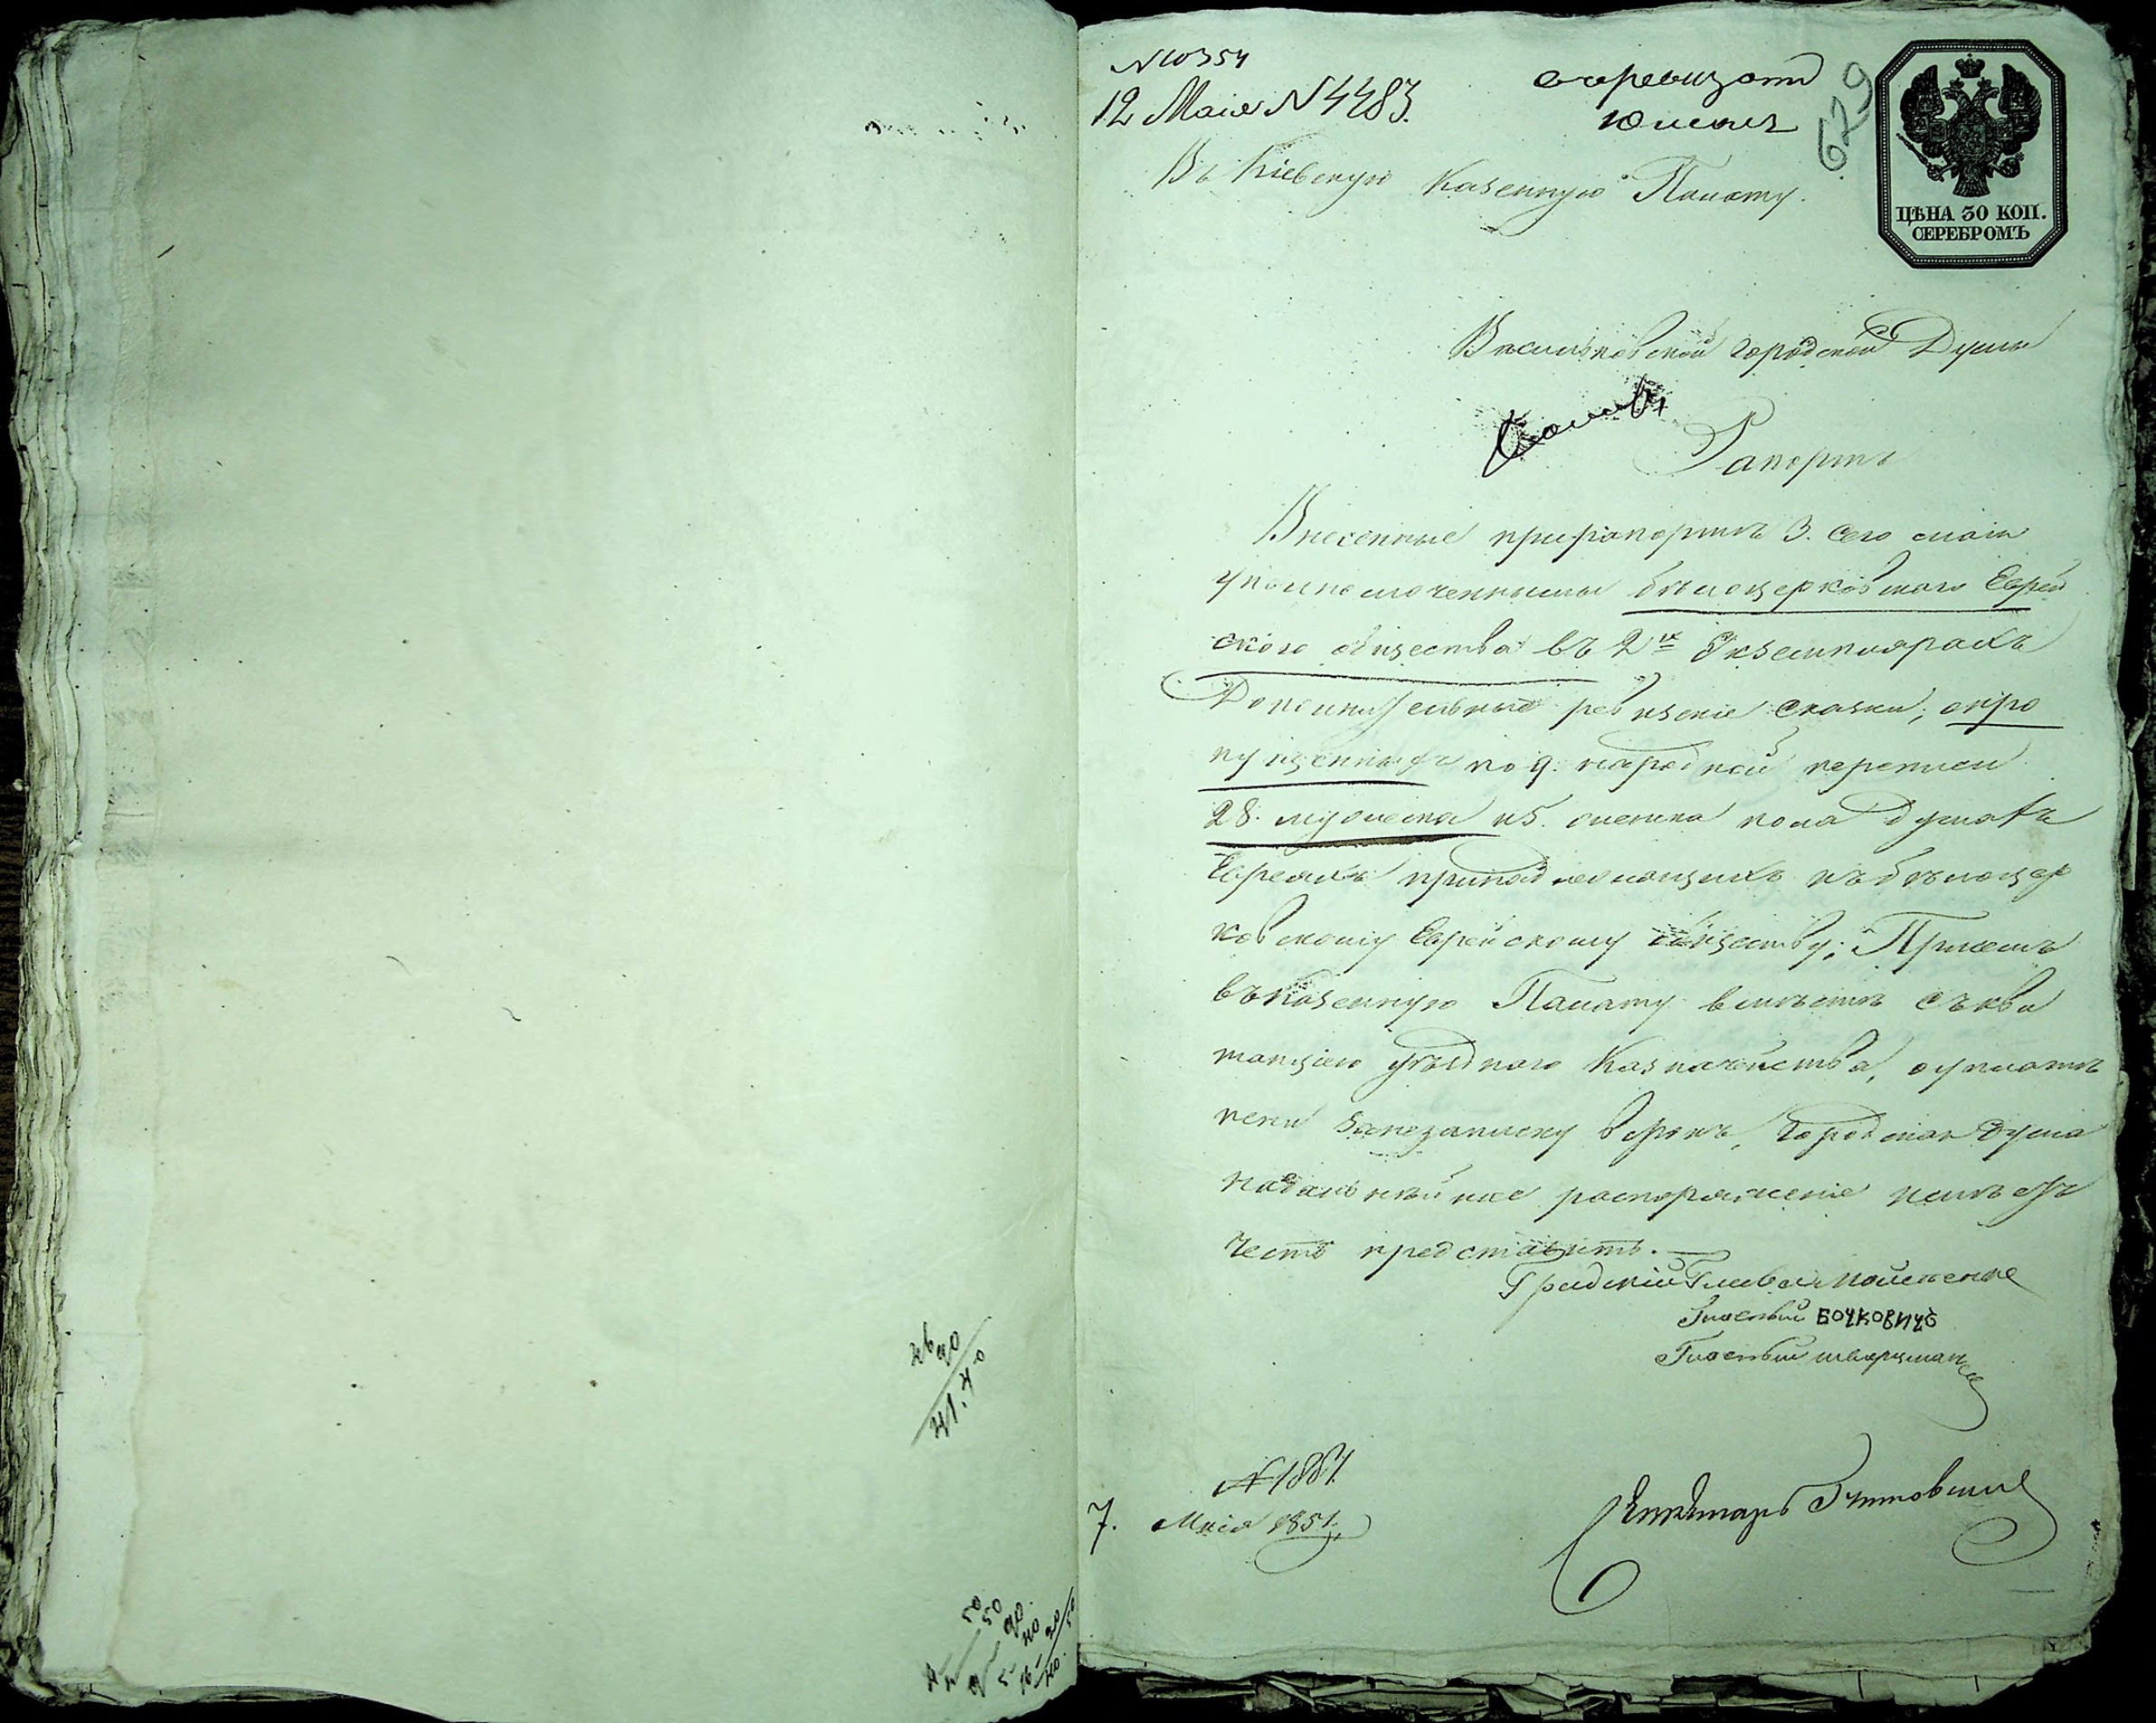 N 10354
12 Маія N 4483.
629
ЦѢНА 30 КОП.
СЕРЕБРОМЪ
Въ Кіевскую Казенную Палату.
Васильковской Городской Думы
Рапортъ
Внесенные при рапортѣ 3. сего маія
уполномоченными бѣлоцерковскаго Еврей
скаго общества въ 2хъ Экземплярахъ
Дополнительные ревизскіе сказки, о про
пущенныхъ по 9. народной переписи
28. мужеска и 5. женска пола душахъ
Евреяхъ принадлежащихъ къ бѣлоцер
ковскому Еврейскому обществу; При семъ
въ казенную Палату вмѣстѣ съ кви
танціею уѣзднаго Казначейства, о уплатѣ
пени за незаписку въ срокъ, Городская дума
на дальнѣйшее распоряженіе имѣетъ
честь представить.
Градскій Глава
Гласный Бочковичъ
Гласный Шварцманъ
Секретарь
N 1887.
7. Маія 1851.
2690
41.40